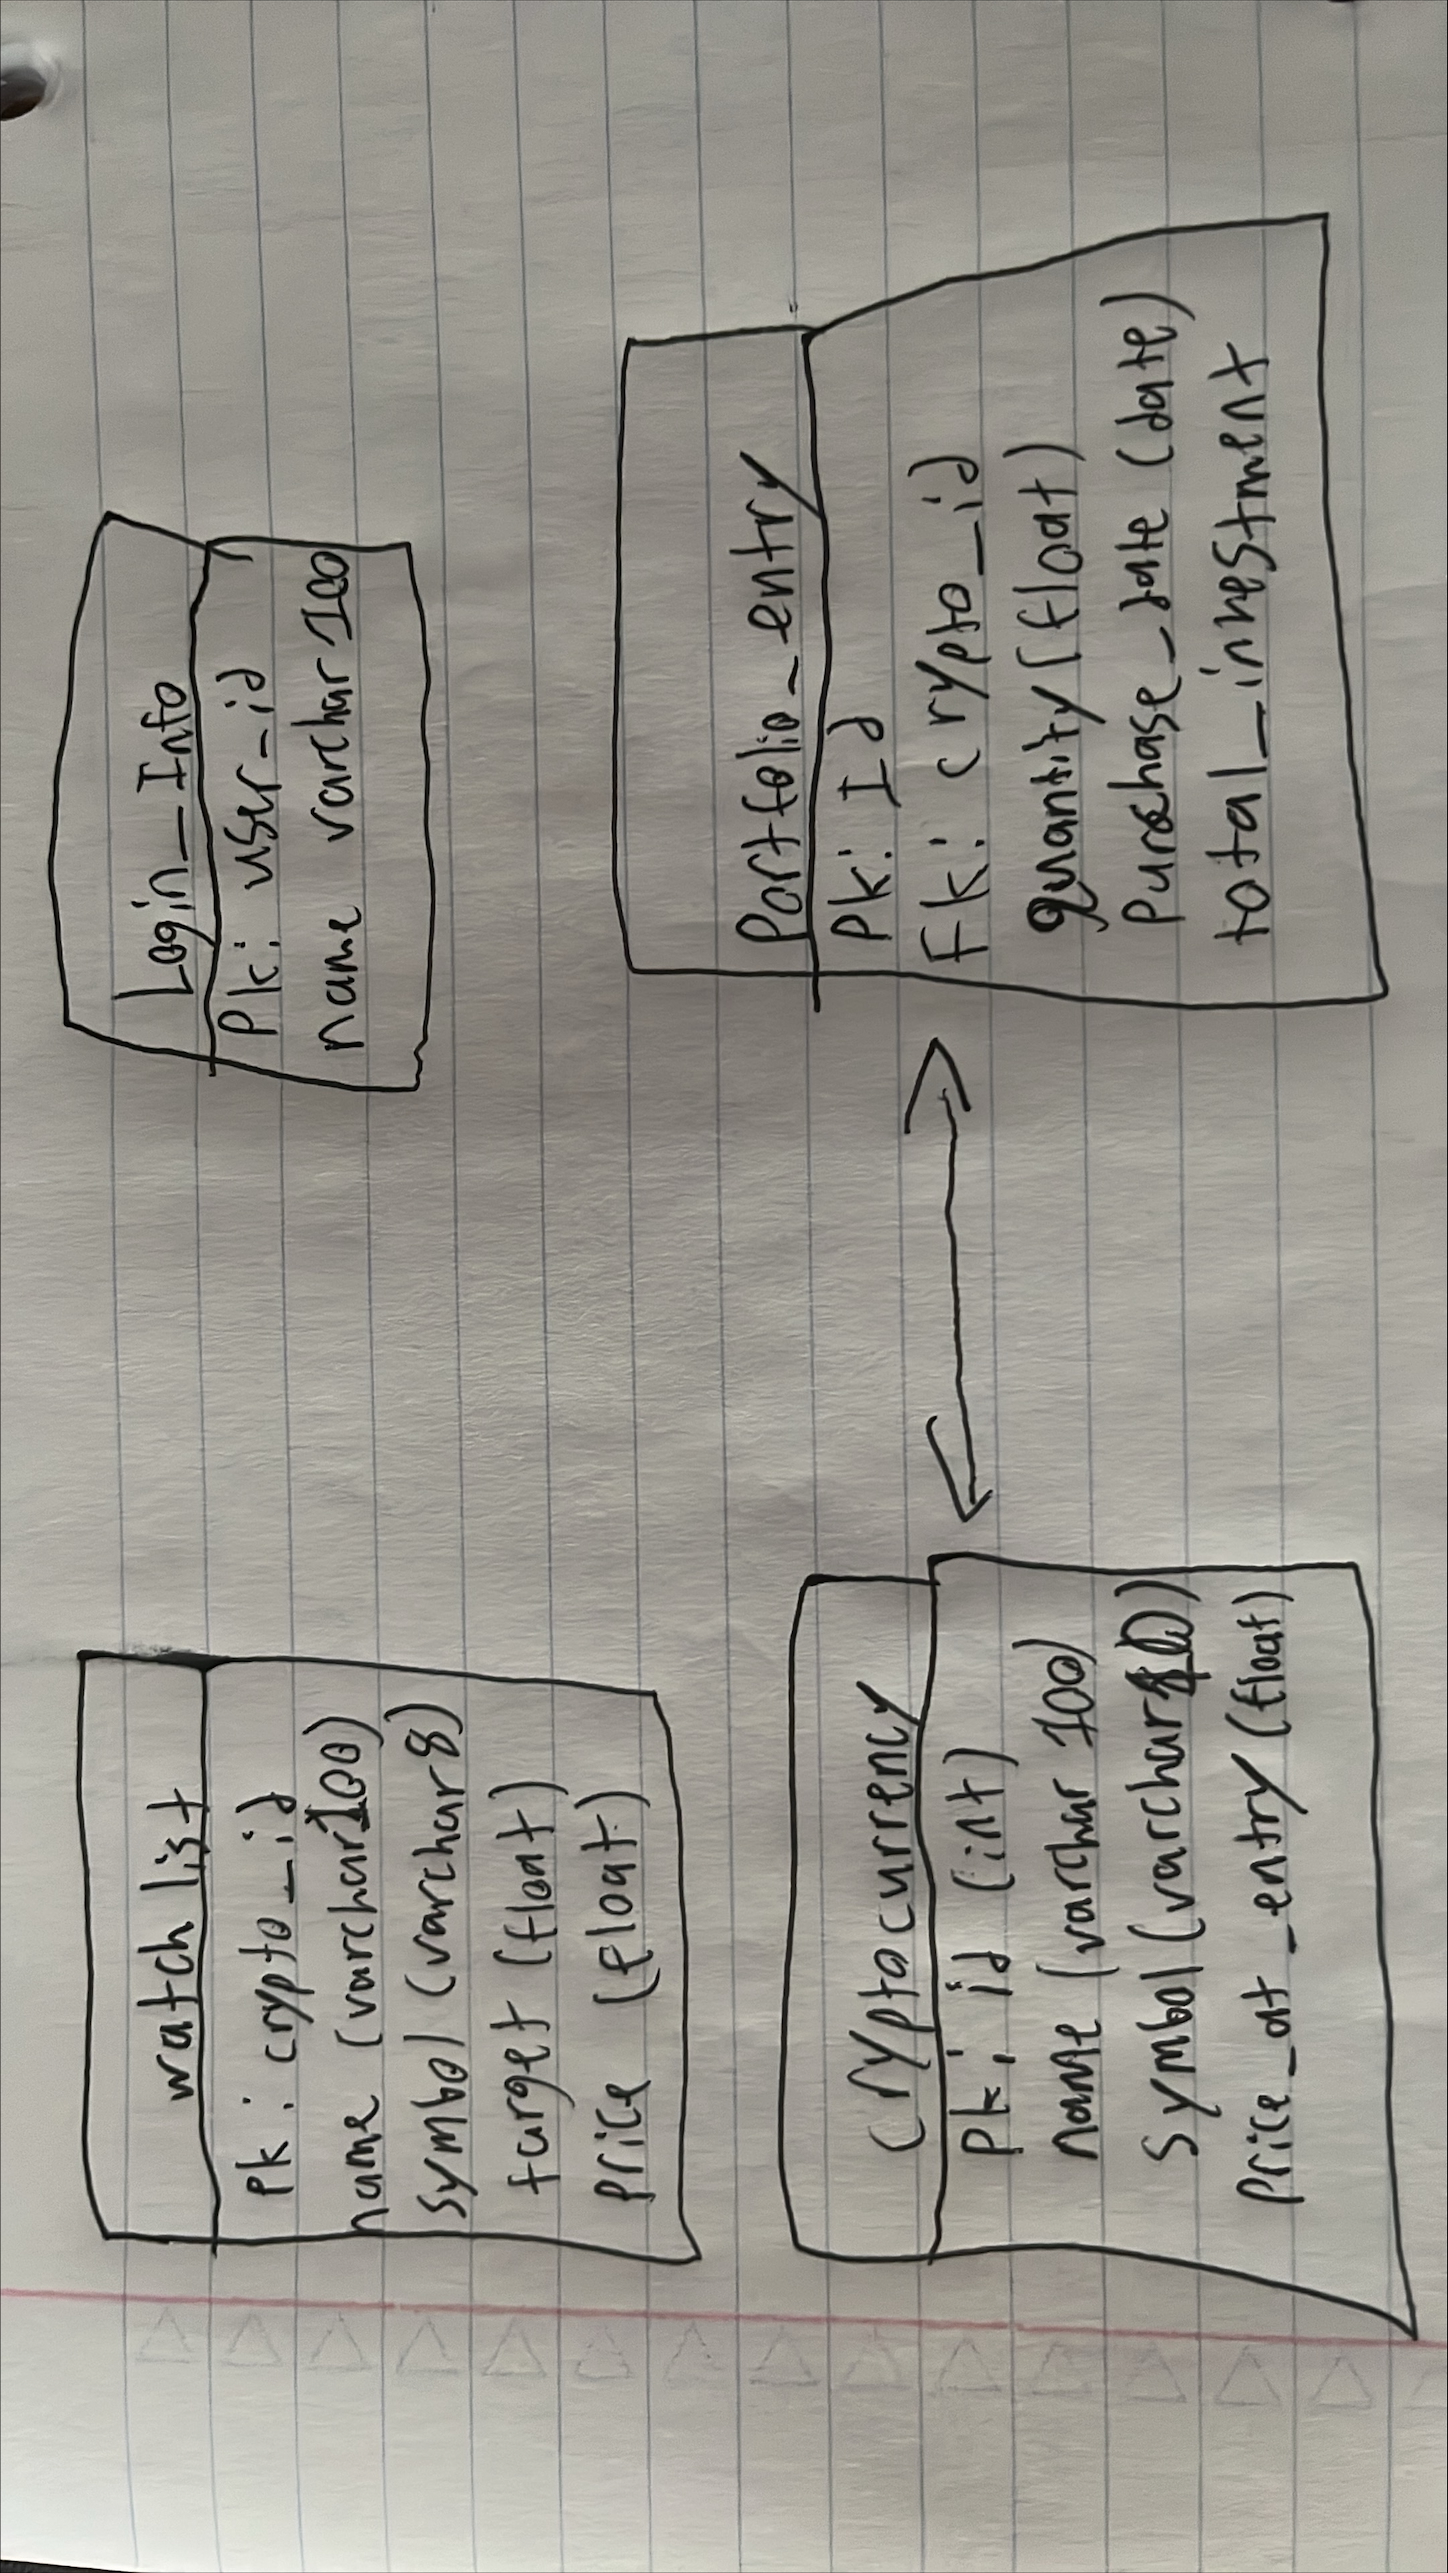 watch list
Pk: crypto_id
name (varchar100)
symbol (varchar8)
target (float)
price (float)
Login_Info
Pk: user_id
name varchar100
Cryptocurrency
Pk: id (int)
name (varchar 100)
Symbol (varchar
price_at_entry (float)
Portfolio_entry
Pk: Id
Fk: crypto_id
Quantity (float)
Purchase_date (date)
total_investment